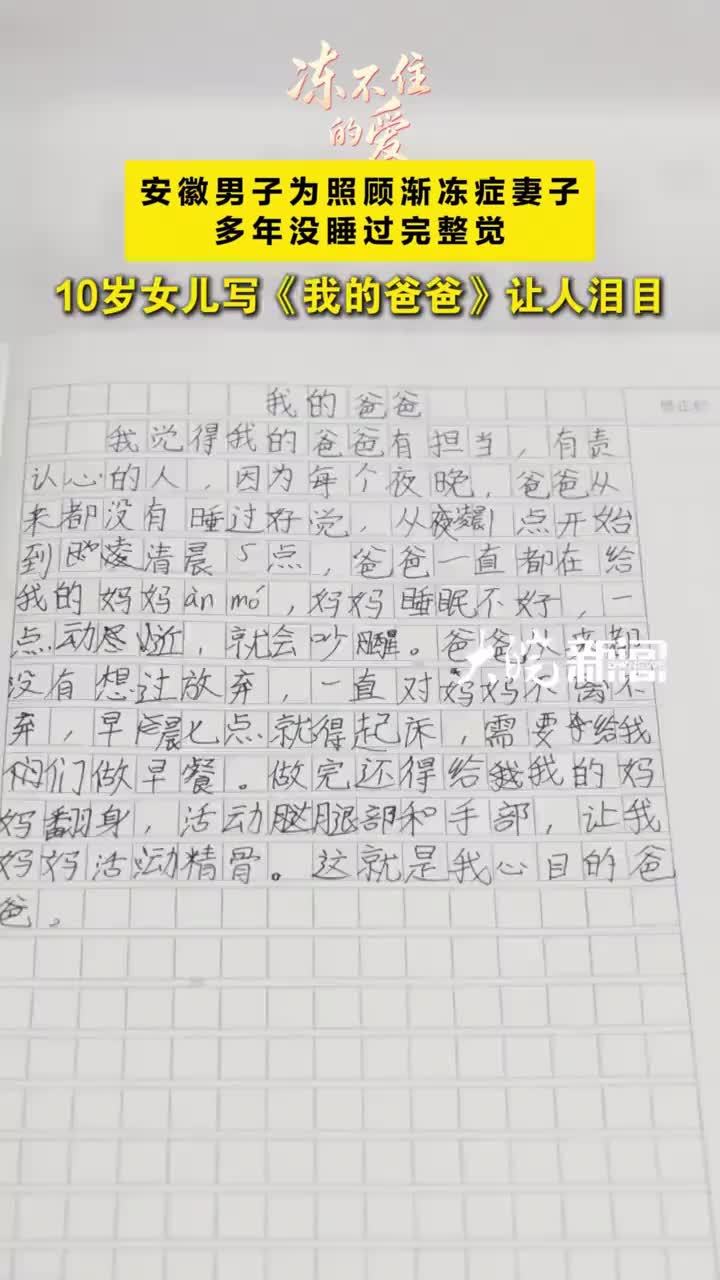 冻不住
的爱
安徽男子为照顾渐冻症妻子
多年没睡过完整觉
10岁女儿写《我的爸爸》让人泪目
我的爸爸
我觉得我的爸爸有担当，有责
认心的人，因为每个夜晚，爸爸从
来都没有睡过好觉，从夜 1点开始
到 凌清晨5点，爸爸一直都在给
我的妈妈àn mó，妈妈睡眠不好，一
点动 ，就会吵醒。爸爸从来都
大皖新闻
没有想过放弃，一直对妈妈不离不
弃，早 晨七点就得起床，需要 给我
们做早餐。做完还得给 我的妈
妈翻身，活动 腿部和手部，让我
妈妈活动精骨。这就是我心目的爸
爸。